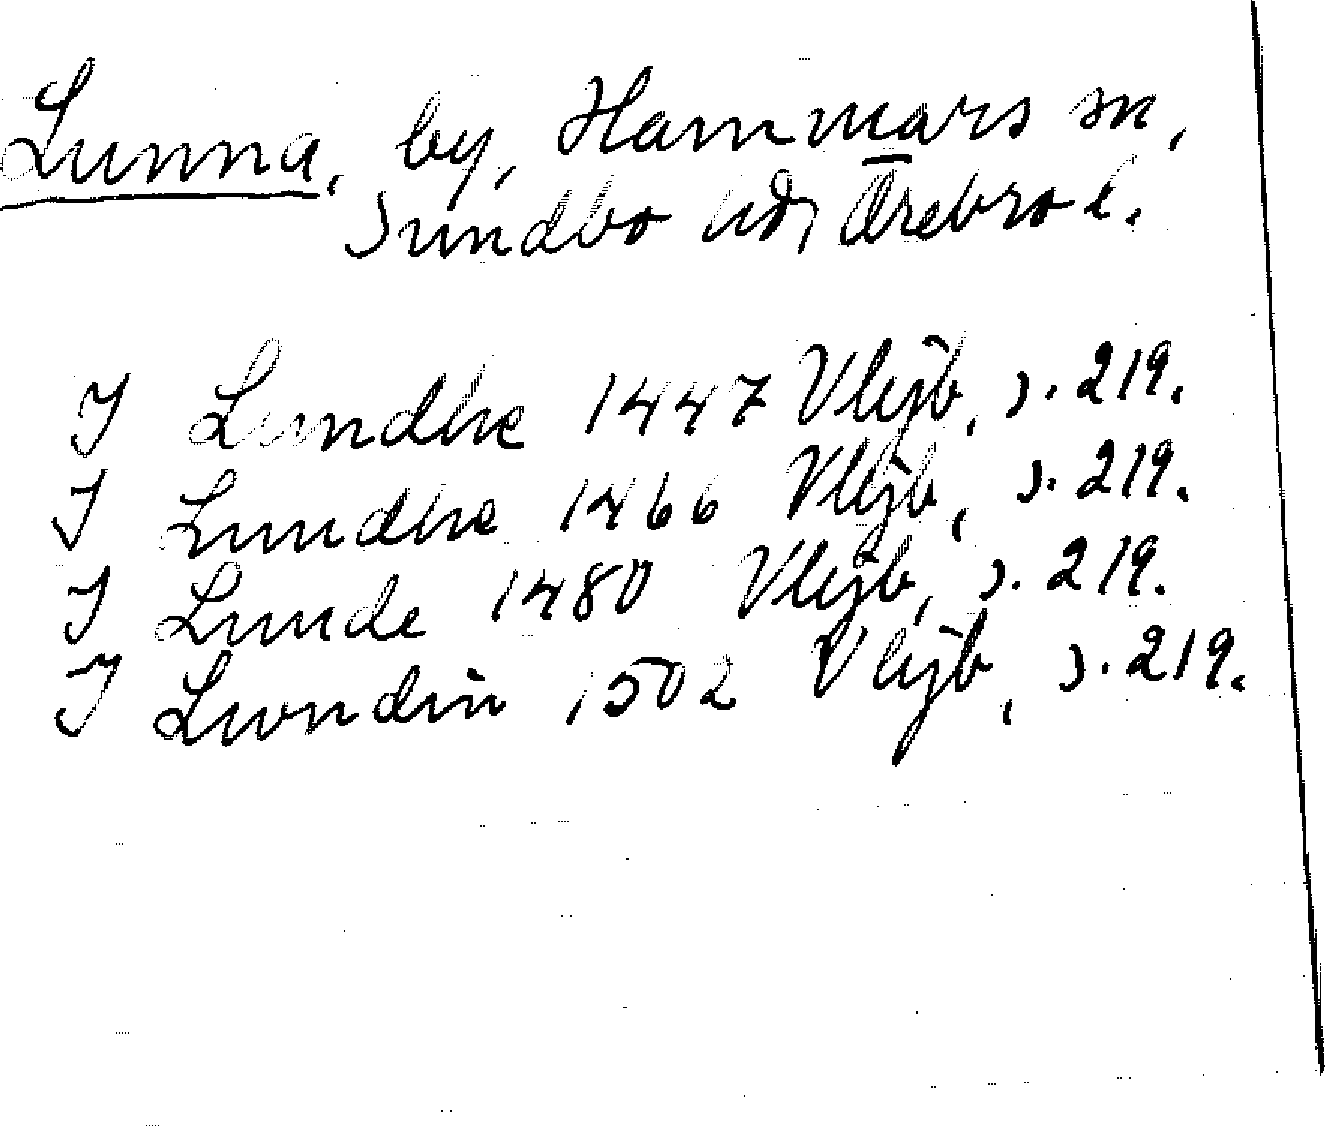 Lunna, by, Hammars sn,
Sundbo hd, Örebro l.
I Lundhe 1447 Vlejb, s. 219.
I Lundhe 1466 Vlejb, s. 219.
I Lunde 1480 Vlejb, s. 219.
I Lwndin 1502 Vlejb, s. 219.